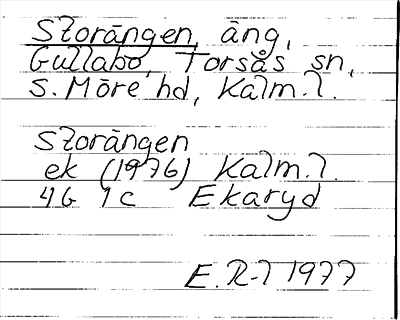 Storängen, äng,
Gullabo, Torsås sn,
S. Möre hd, Kalm. l.
Storängen
ek (1976) Kalm. l.
4G 1c Ekaryd
E. R-l 1977